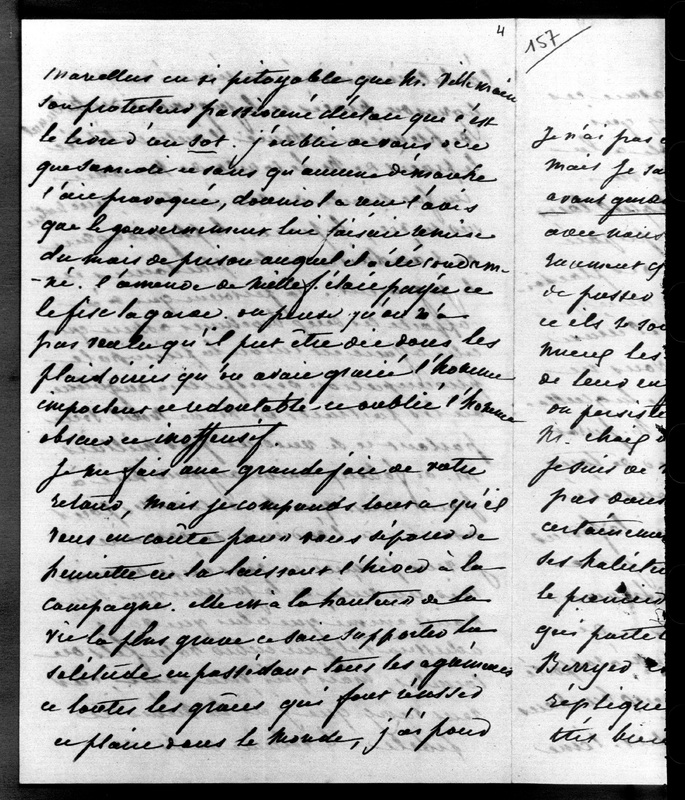 4
Marcellus est si pitoyable que Mr. Villemain
son protecteur passionné déclare que c'est
le livre d'un sot. j'oublie de vous dire
que samedi et sans qu'aucune démarche
l'ait provoqué, douniol a reçu l'avis
que le gouvernement lui faisait remise
du mois de prison auquel il a été condam-
-né. l'amende de mille f. était payée et
le fisc la garde. on pense qu'on n'a
pas voulu qu'il put être dit dans les
plaidoiries qu'on avait gracié l'homme
important et redoutable et oublié l'homme
obscur et inoffensif
Je me fais une grande joie de votre
retour, mais je comprends tout ce qu'il
vous en coûte pour vous séparer de
en la laissant l'hiver à la
campagne. elle est à la hauteur de la
vie la plus grave et sait supporter la
solitude en possédant tous les agréments
et toutes les grâces qui font réussir
et plaire dans le monde, j'ai pour
157
Je n'ai pas
mais je
avant
avec
de passer
et ils se
mieux les
de leur
on persiste
Mr. chaix
je suis de
pas dans
certainement
ses
le premier
qui parte
Berryer
réplique
très bien